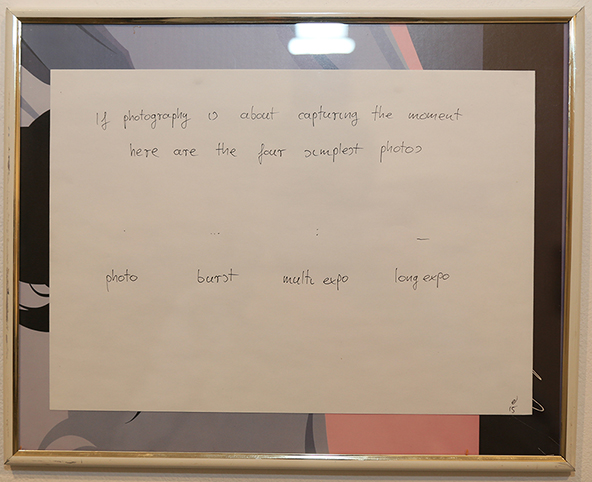 If photography is about capturing the moment
here are the four simplest photos
. ... : _
photo burst multi expo long expo
15